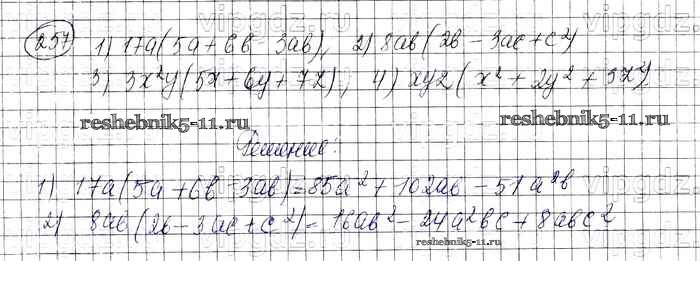 257 1) 17a(5a + 6b 3ab), 2) 8ab(2b - 3ac + c²)
3) 3x²y(5x + 6y + 7z); 4) xyz(x² + 2y² + 3z²)
reshebnik5-11.ru reshebnik5-11.ru
Решение:
1) 17a(5a + 6b - 3ab) = 85a² + 102ab - 51a²b
2) 8ab(2b - 3ac + c²) = 16ab² - 24a²bc + 8abc²
reshebnik5-11.ru